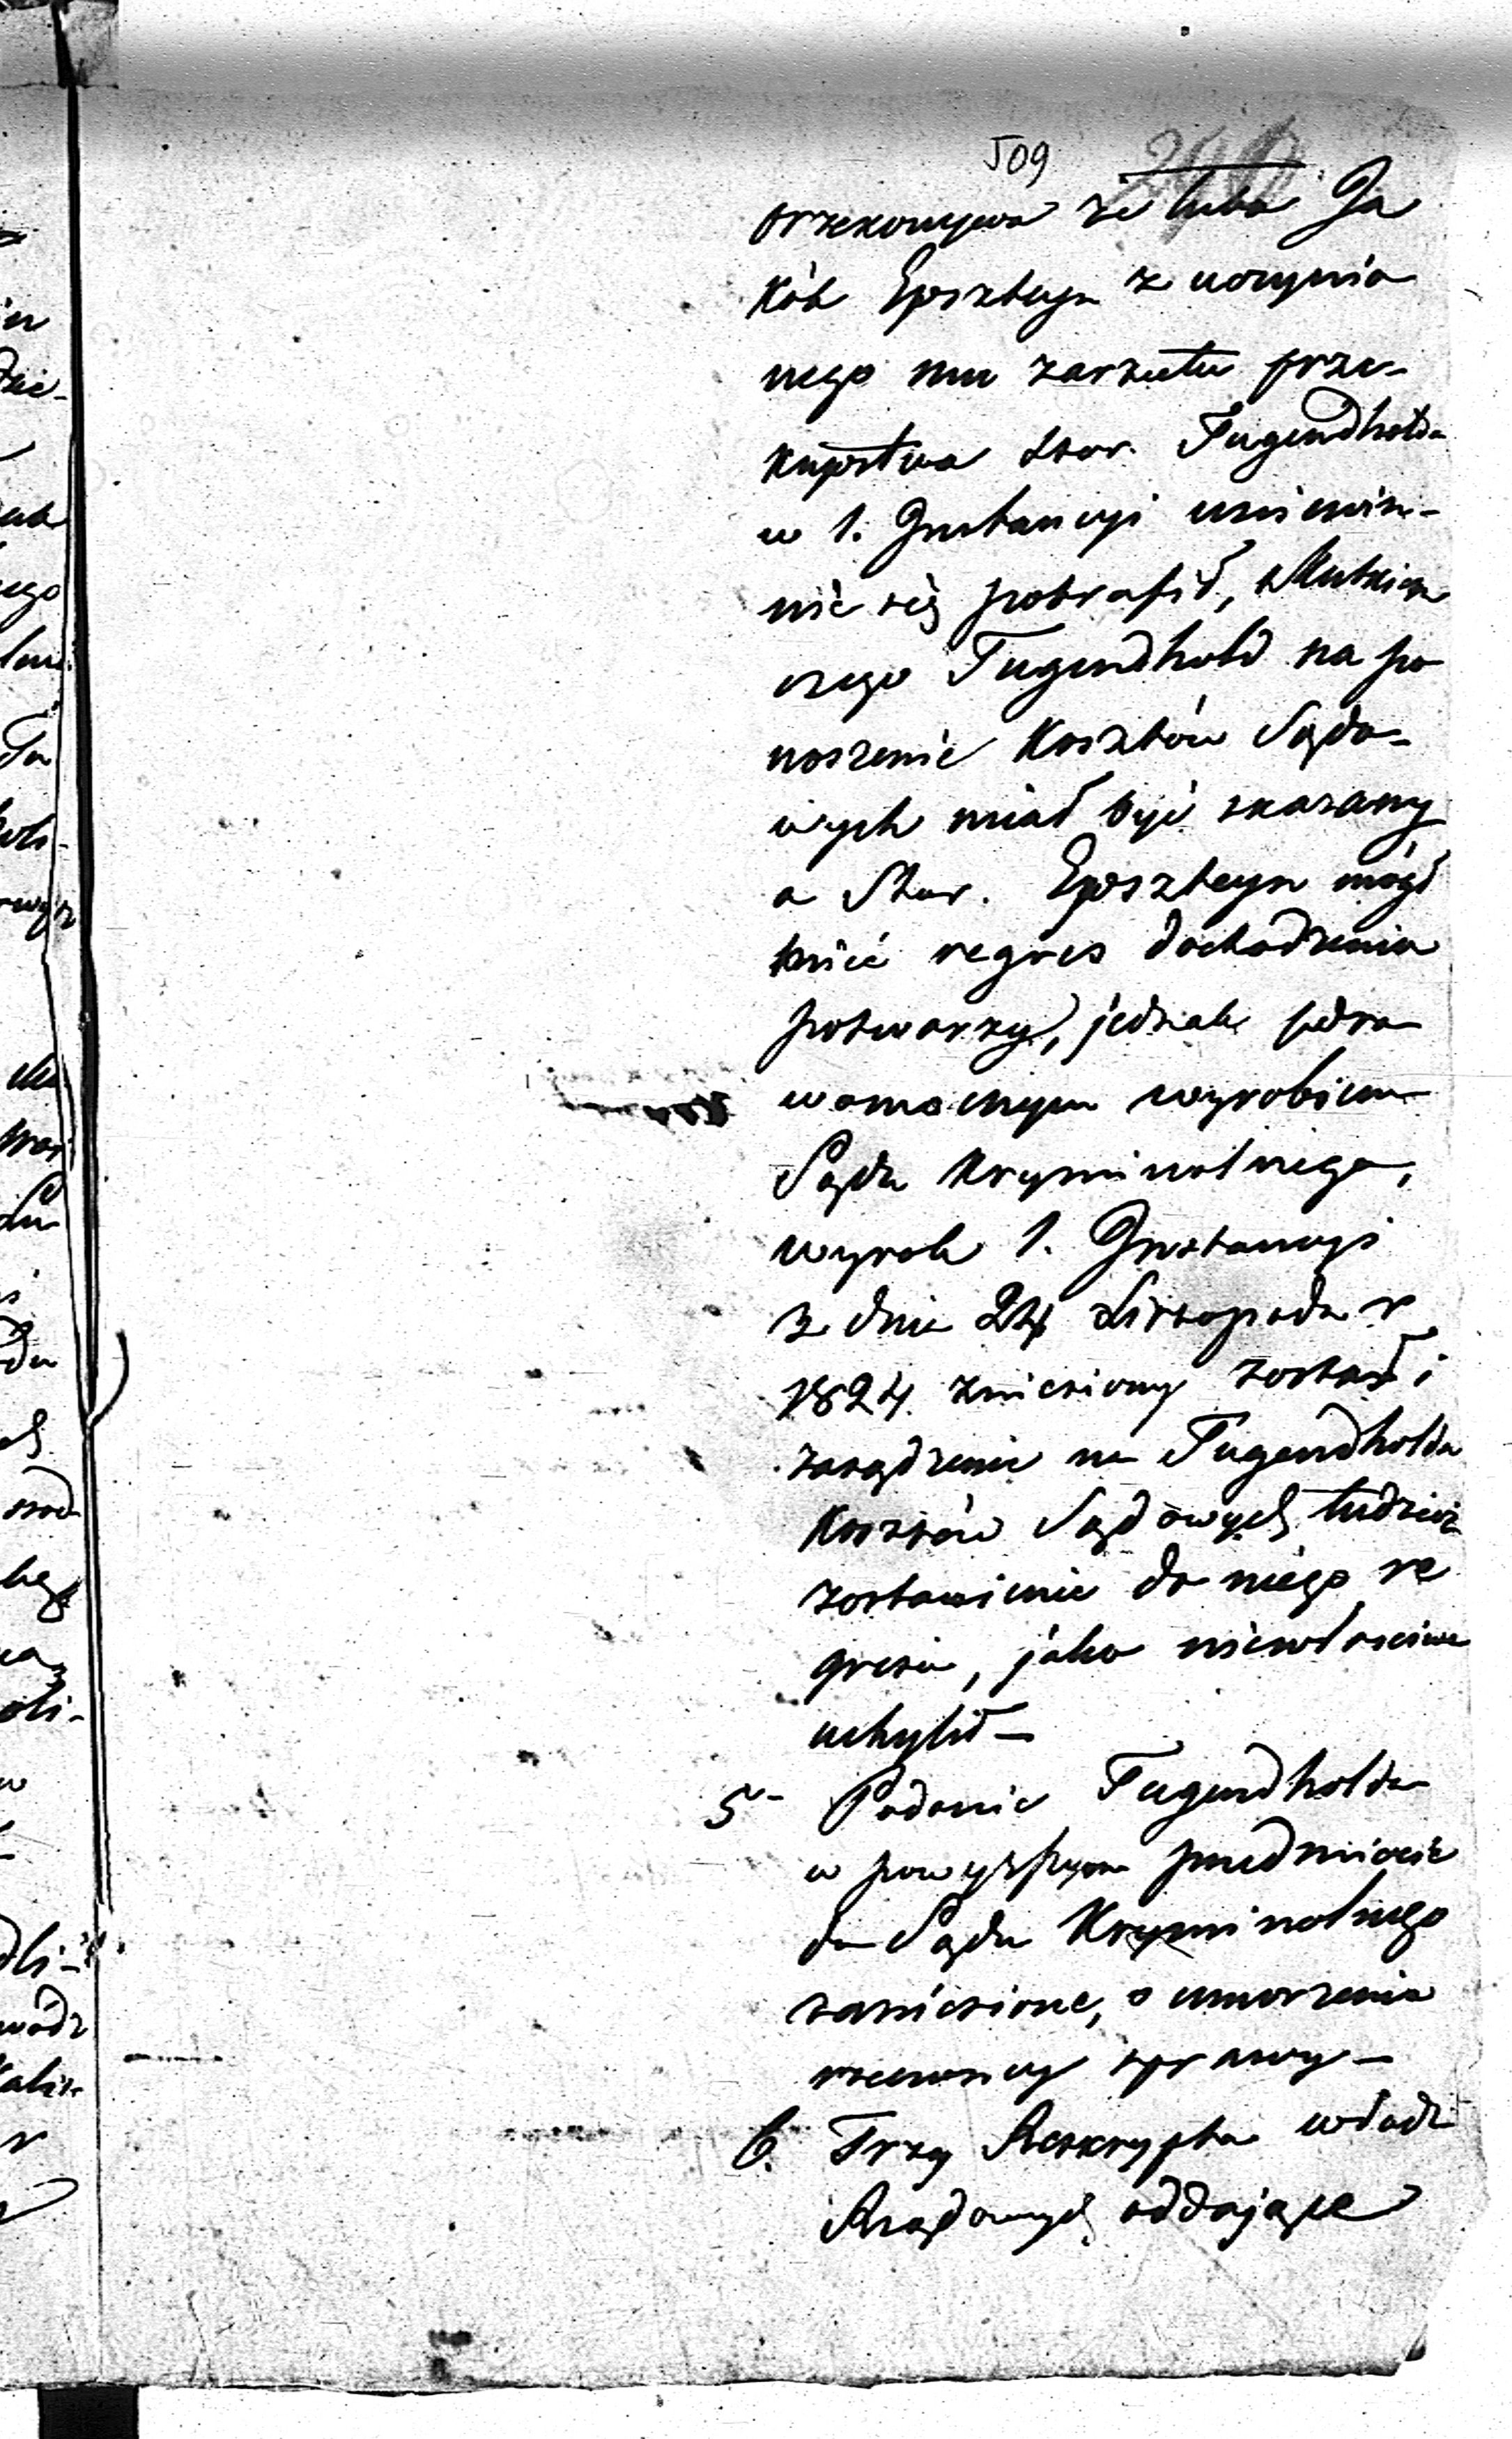 509
orzekonywa że luba Ja
kób Epsztejn z uczynio
nego mu zarzutu prze-
kupstwa star. Tugendholda
w 1. Instancyi uniewin-
nić się potrafił, skutkiem
czego Tugendhold na po
noszenie Kosztów Sądo-
wych miał być skazany
a Star. Epsztejn mógł
mieć regres dochodzenia
potwarzy, jednak pra
womocnym wyrokiem
Sądu Kryminalnego,
wyrok 1. Instancyi
z dnia 24 Listopada r
1824 zniesiony został i
zasądzenie na Tugendholda
Kosztów Sądowych tudzież
zostawienie do niego re
gresu, jako niewłaściwe
uchylił —
5- Podanie Tugendholda
w powyższym przedmiocie
do Sądu Kryminalnego
zaniesione, o umorzenie
rzeczonej sprawy —
6. Trzy Reskrypta władz
Rządowych oddające